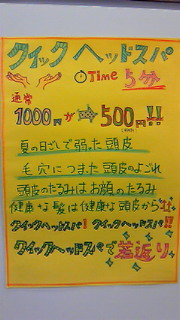 クイックヘッドスパ
Time 5分
通常
1000円が⇨500円!!
夏の日ざしで弱った頭皮
毛穴につまた頭皮のよごれ
頭皮のたるみはお顔のたるみ
健康な髪は健康な頭皮から!!
クイックヘッドスパ! クイックヘッドスパ!!
クイックヘッドスパで若返り